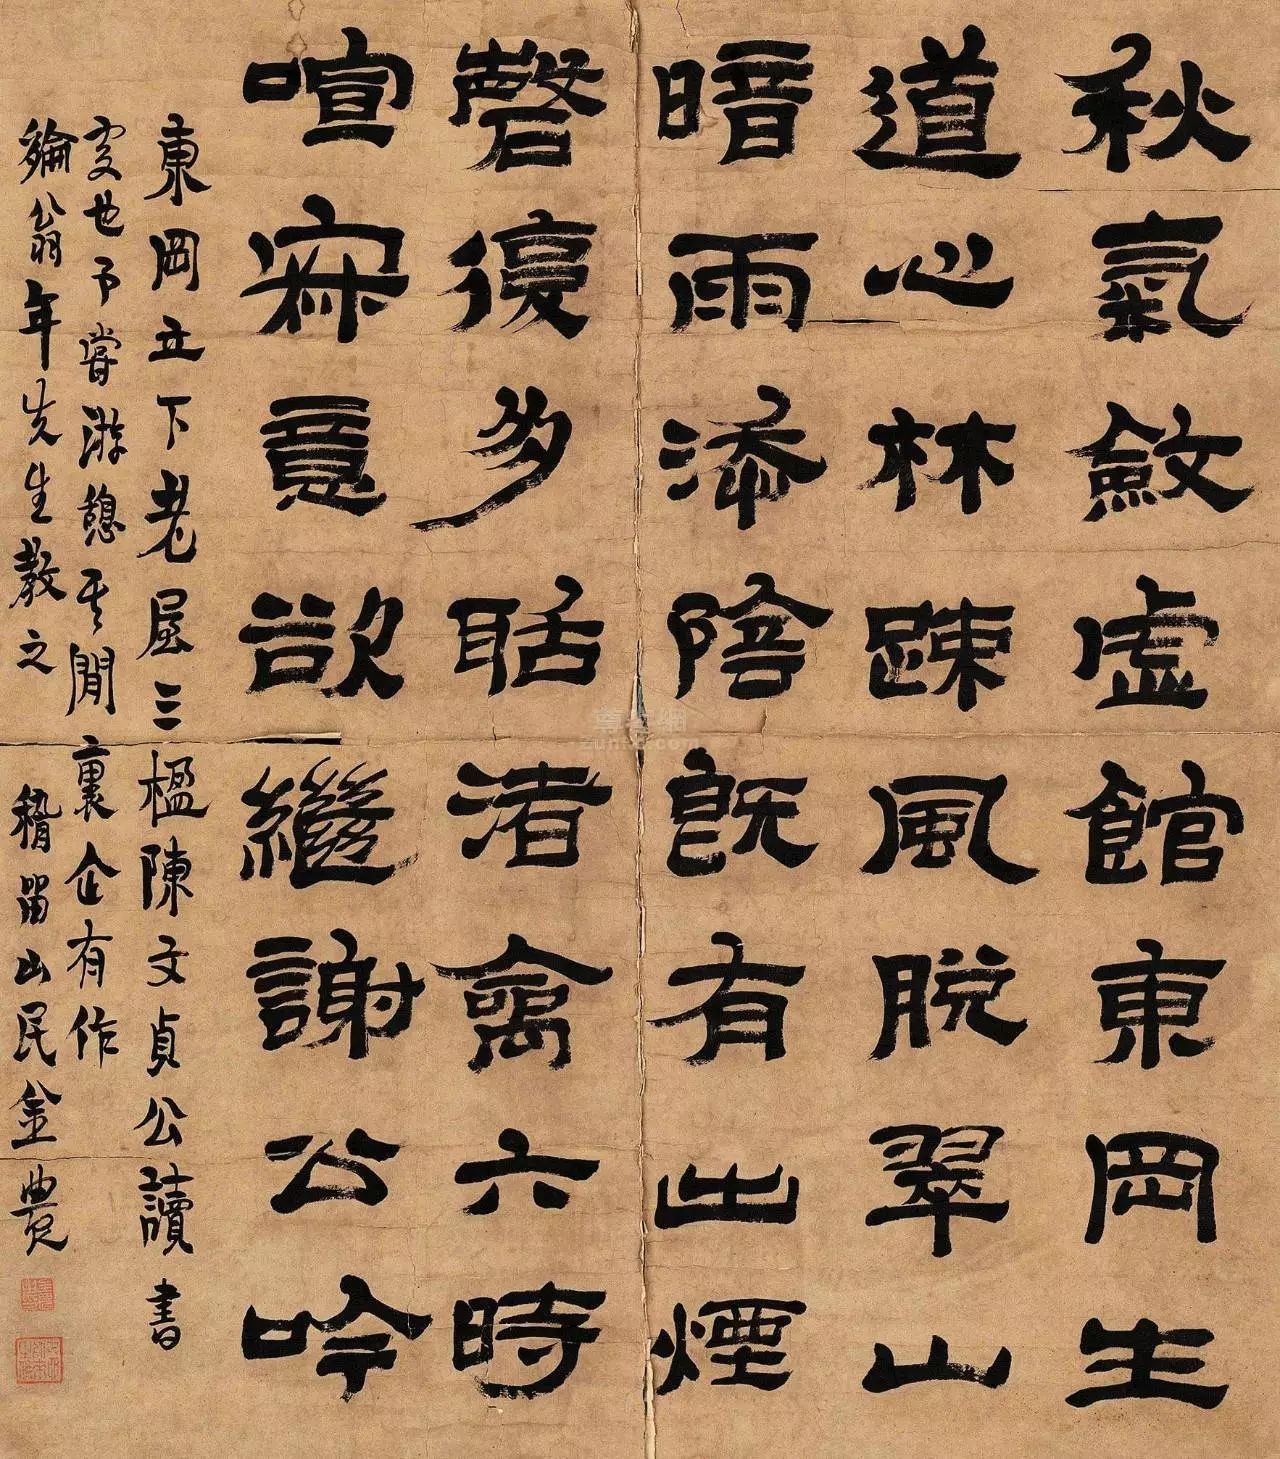 秋氣斂虛館東岡生
道心林疎風脫翠山
暗雨添陰旣有出煙
磬復多聒渚禽六時
喧寂意欲繼謝公吟
東岡立下老屋三楹陳文貞公讀書
處也予嘗游憩其間裏企有作
綸翁年先生教之 稽留山民金農